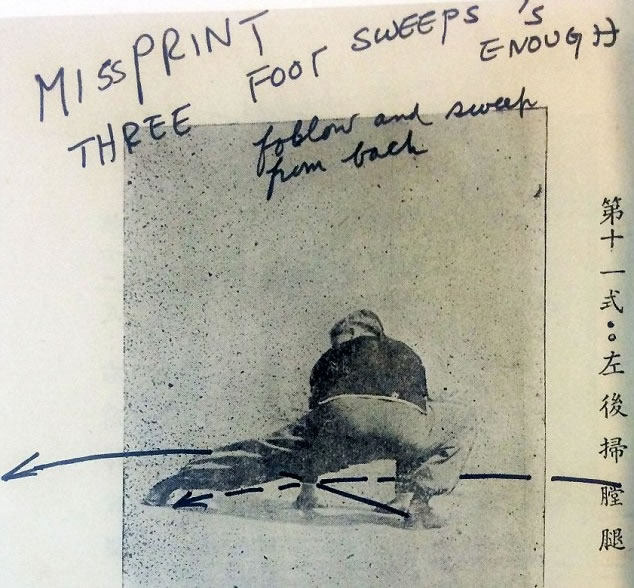 MISSPRINT
THREE FOOT SWEEPS 'S ENOUGH
follow and sweep
from back
第十一式●○左後掃膛腿